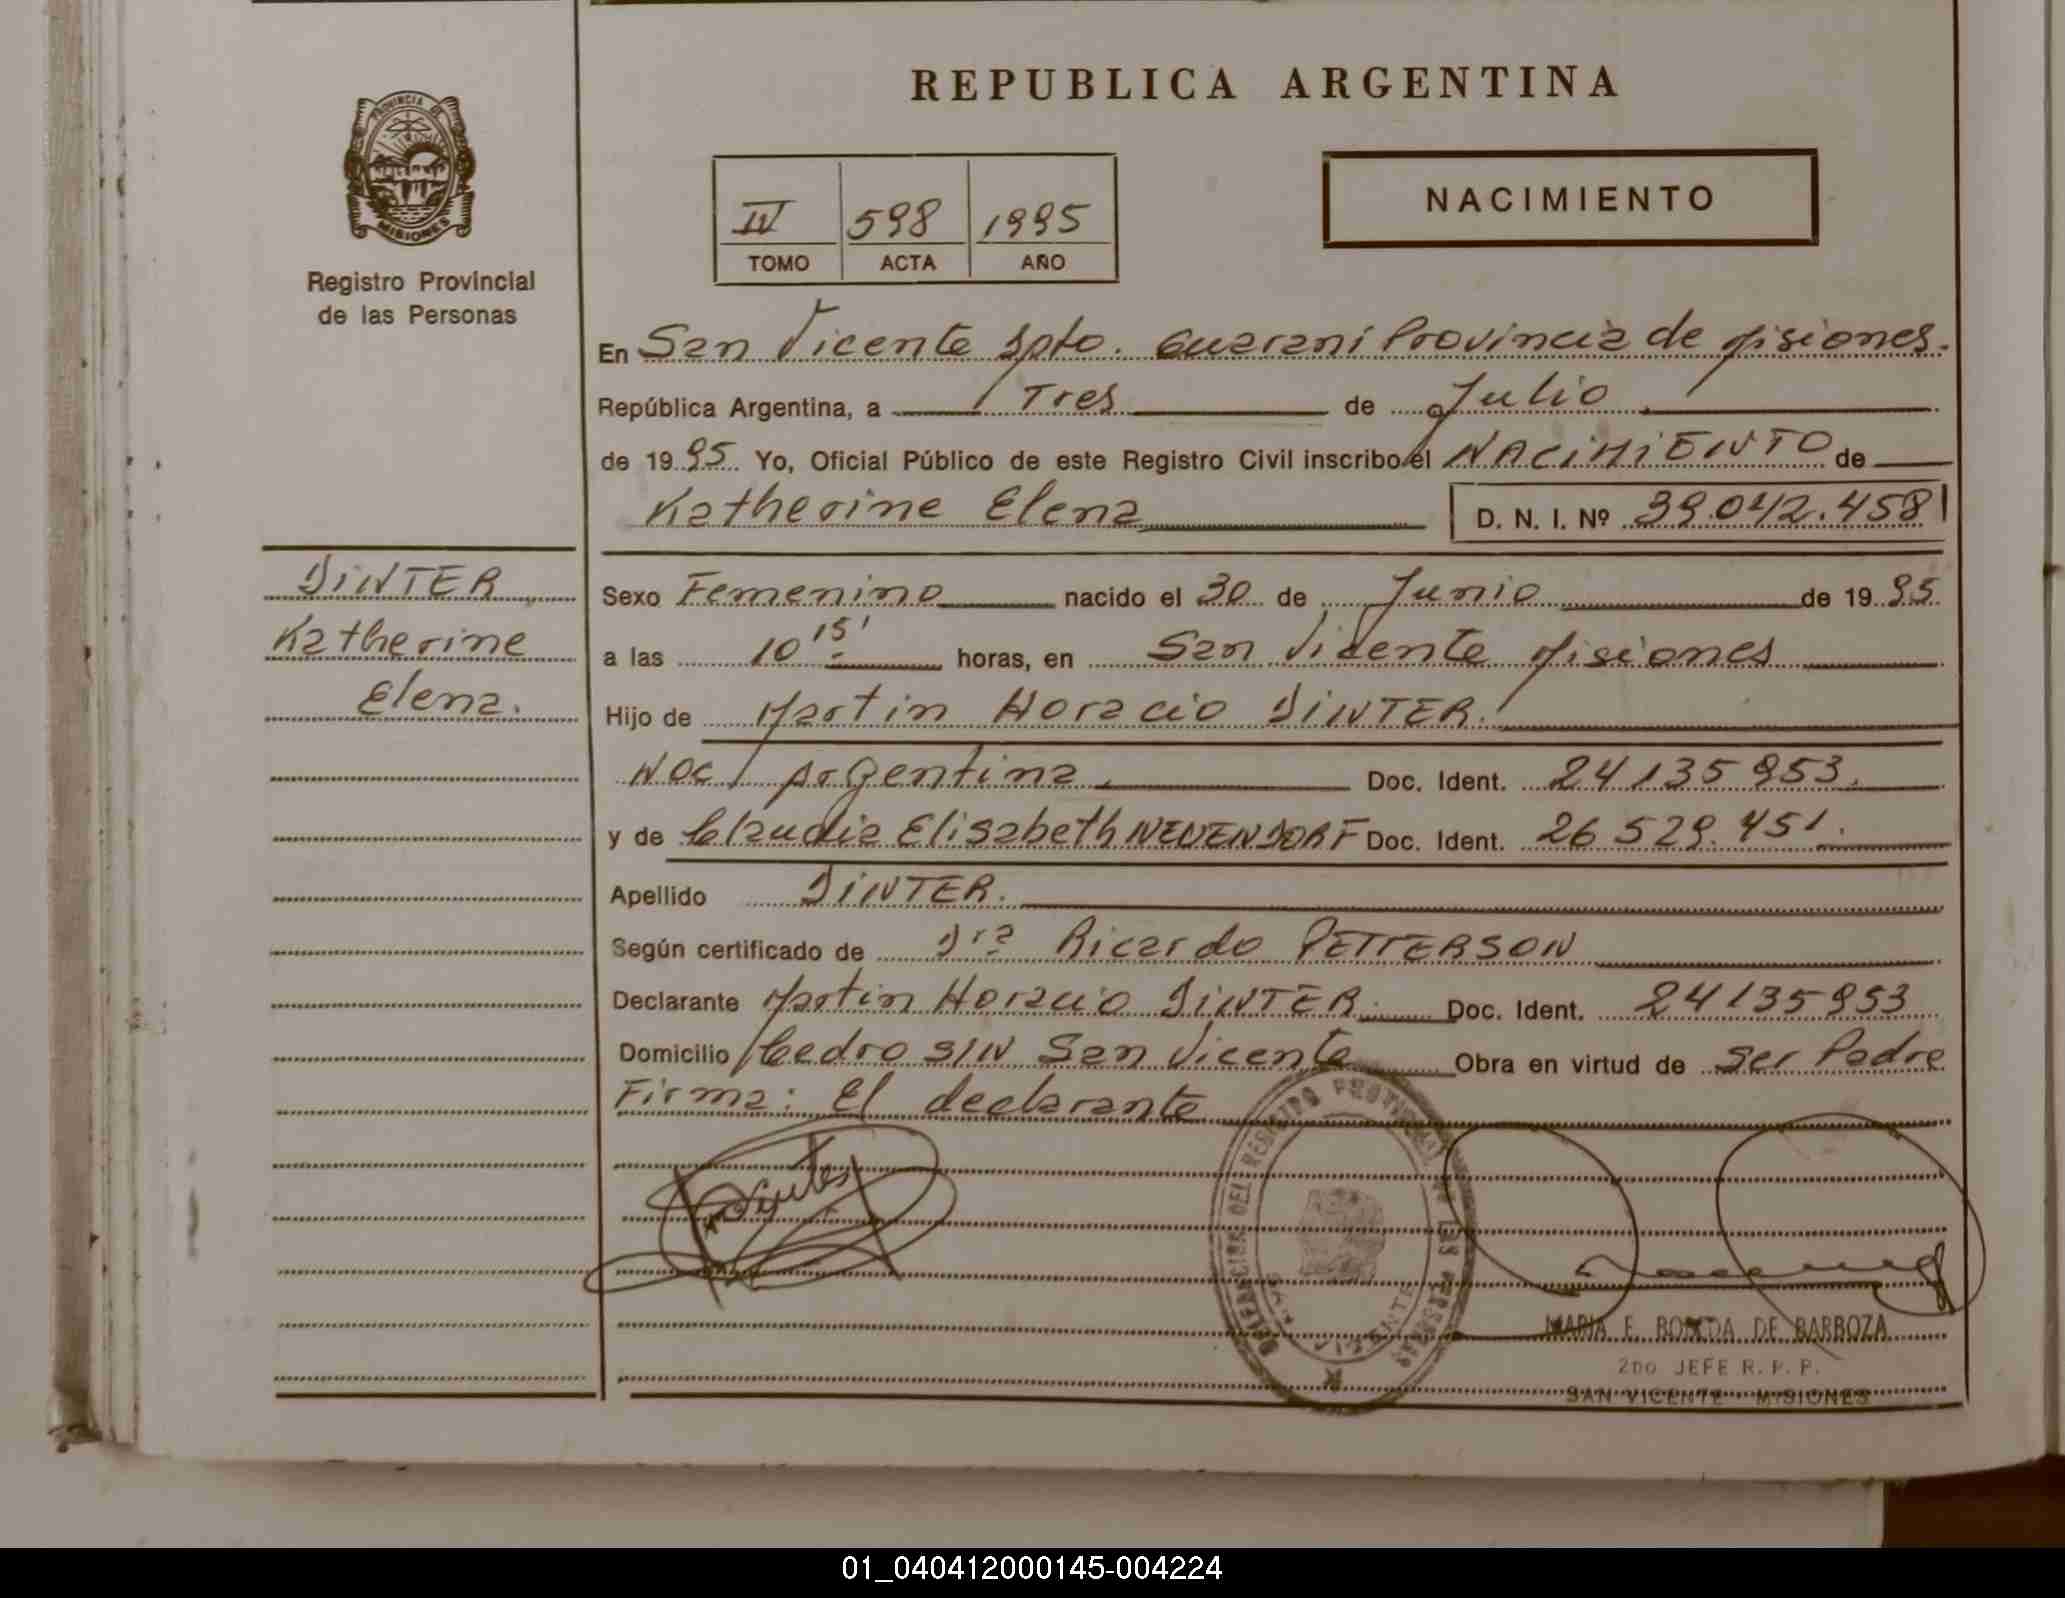 REPUBLICA ARGENTINA
PROVINCIA DE
MISIONES
Registro Provincial
de las Personas
IV 598 1995
TOMO ACTA AÑO
NACIMIENTO
En San Vicente Dpto. Guaraní Provincia de Misiones.
República Argentina, a Tres de Julio
de 1995 Yo, Oficial Público de este Registro Civil inscribo el NACIMIENTO de
Katherine Elena D. N. I. Nº 39.042.458
DINTER
Katherine
Elena.
Sexo Femenino nacido el 30 de Junio de 1995
a las 10 15' horas, en San Vicente Misiones
Hijo de Martin Horacio DINTER.
Nac Argentina. Doc. Ident. 24135953.
y de Claudia Elisabeth NEUENDORF Doc. Ident. 26 529.451.
Apellido DINTER.
Según certificado de Dra Ricardo PETTERSON
Declarante Martin Horacio DINTER. Doc. Ident. 24135953
Domicilio Cedro S/N San Vicente Obra en virtud de Ser Padre
Firma: El declarante
DEL REGISTRO PROVINCIAL DE LAS PERSONAS
MARIA E. DE BARBOZA
2DO JEFE R. P. P.
SAN VICENTE - MISIONES
01_040412000145-004224